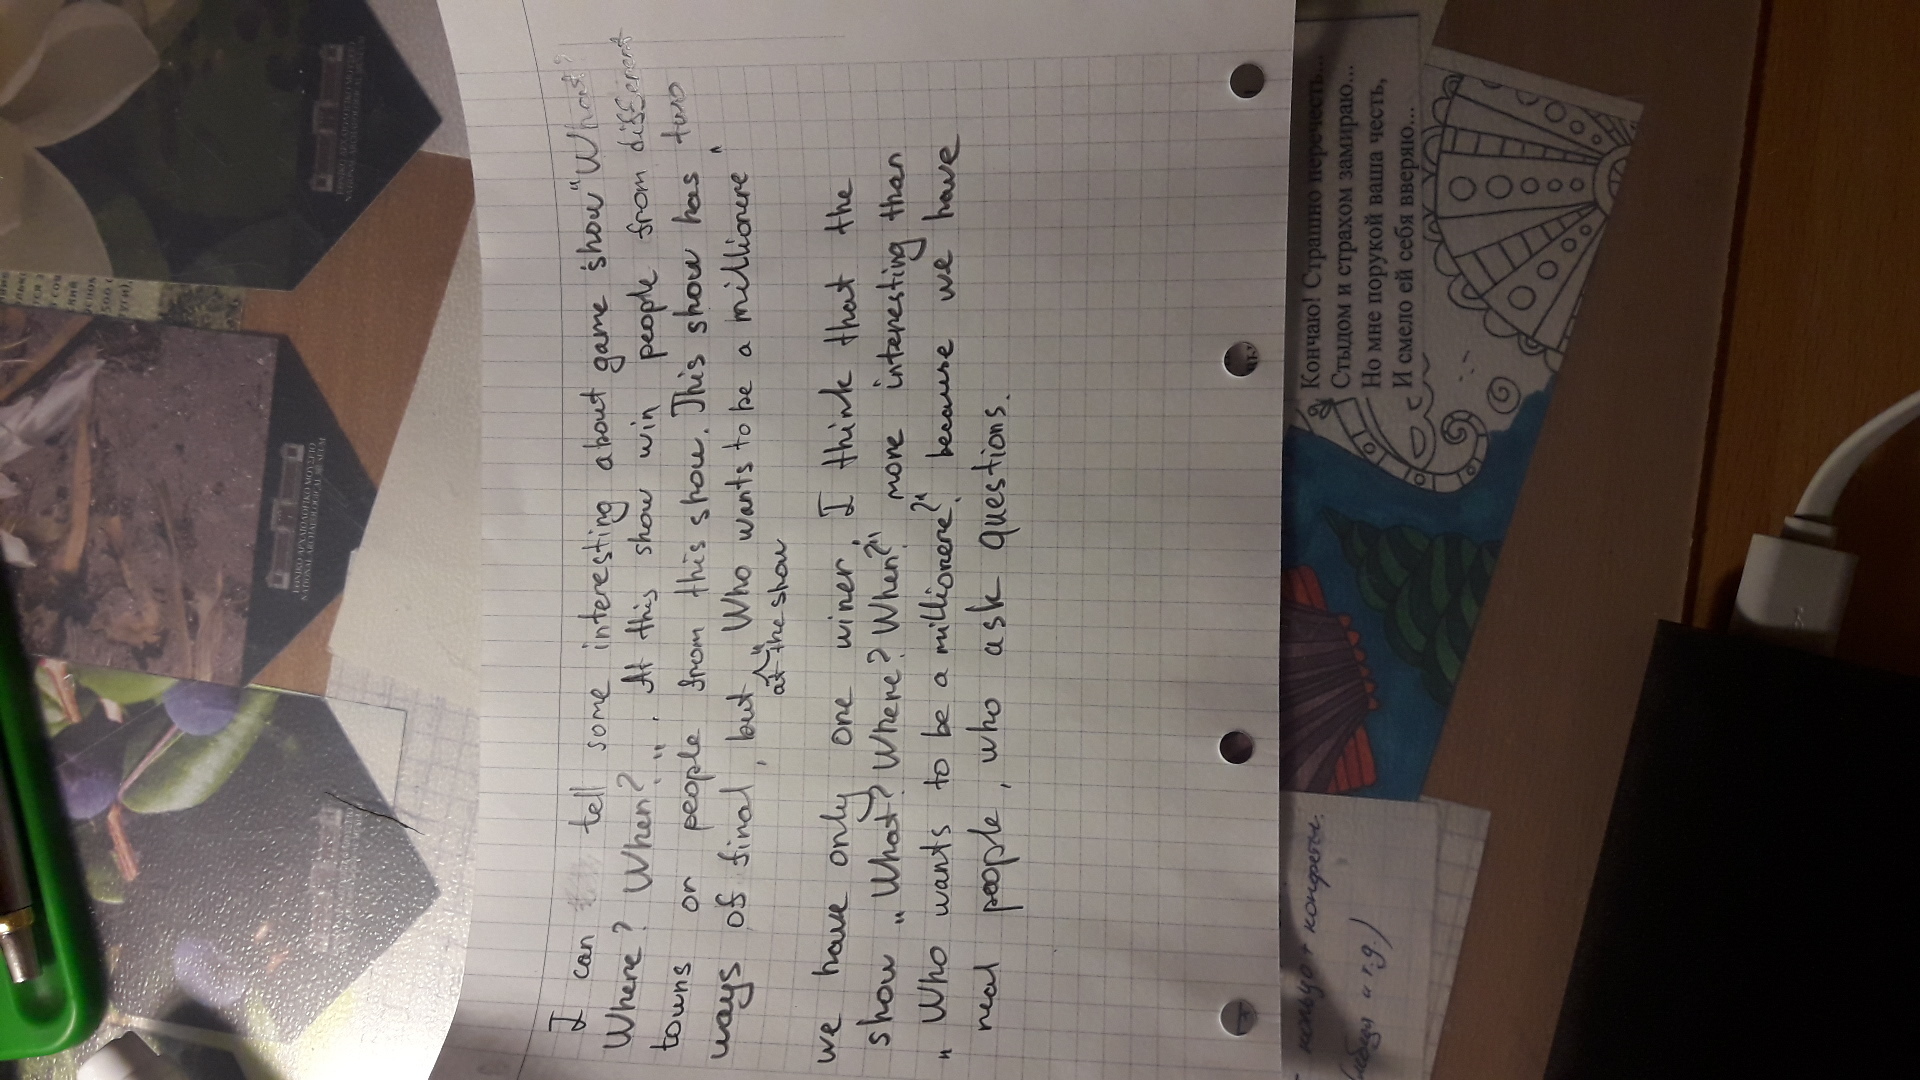 I can tell some interesting about game show "What?
Where? When?". At this show win people from different
towns or people from this show. This show has two
ways of final, but "Who wants to be a millionere"
at the show
we have only one winer, I think that the
show "What? Where? When?" more interesting than
"Who wants to be a millionere?" because we have
real people, who ask questions.
Кончаю! Страшно перечесть...
Стыдом и страхом замираю...
Но мне порукой ваша честь,
И смело ей себя вверяю...
кольцо + конфеты.
и т.д.)
NATIONAL ARCHAEOLOGICAL MUSEUM
NATIONAL ARCHAEOLOGICAL MUSEUM